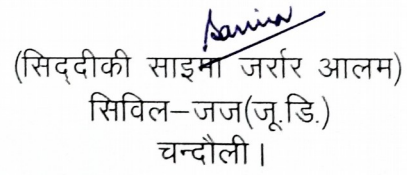 (सिद्दीकी साइमा जर्रार आलम)
सिविल–जज(जू.डि.)
चन्दौली।